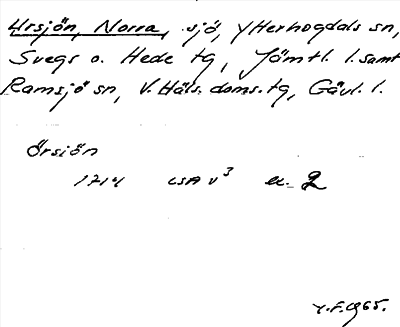 Ursjön, Norra, sjö, YHerhogdals sn,
Svegs o. Hede tg, Jämtl. l. samt
Ramsjö sn, V. Häls. doms. tg, Gävl. l.
Örsiön
1714 LSA V3 nr. 2
Y.F. 1965.